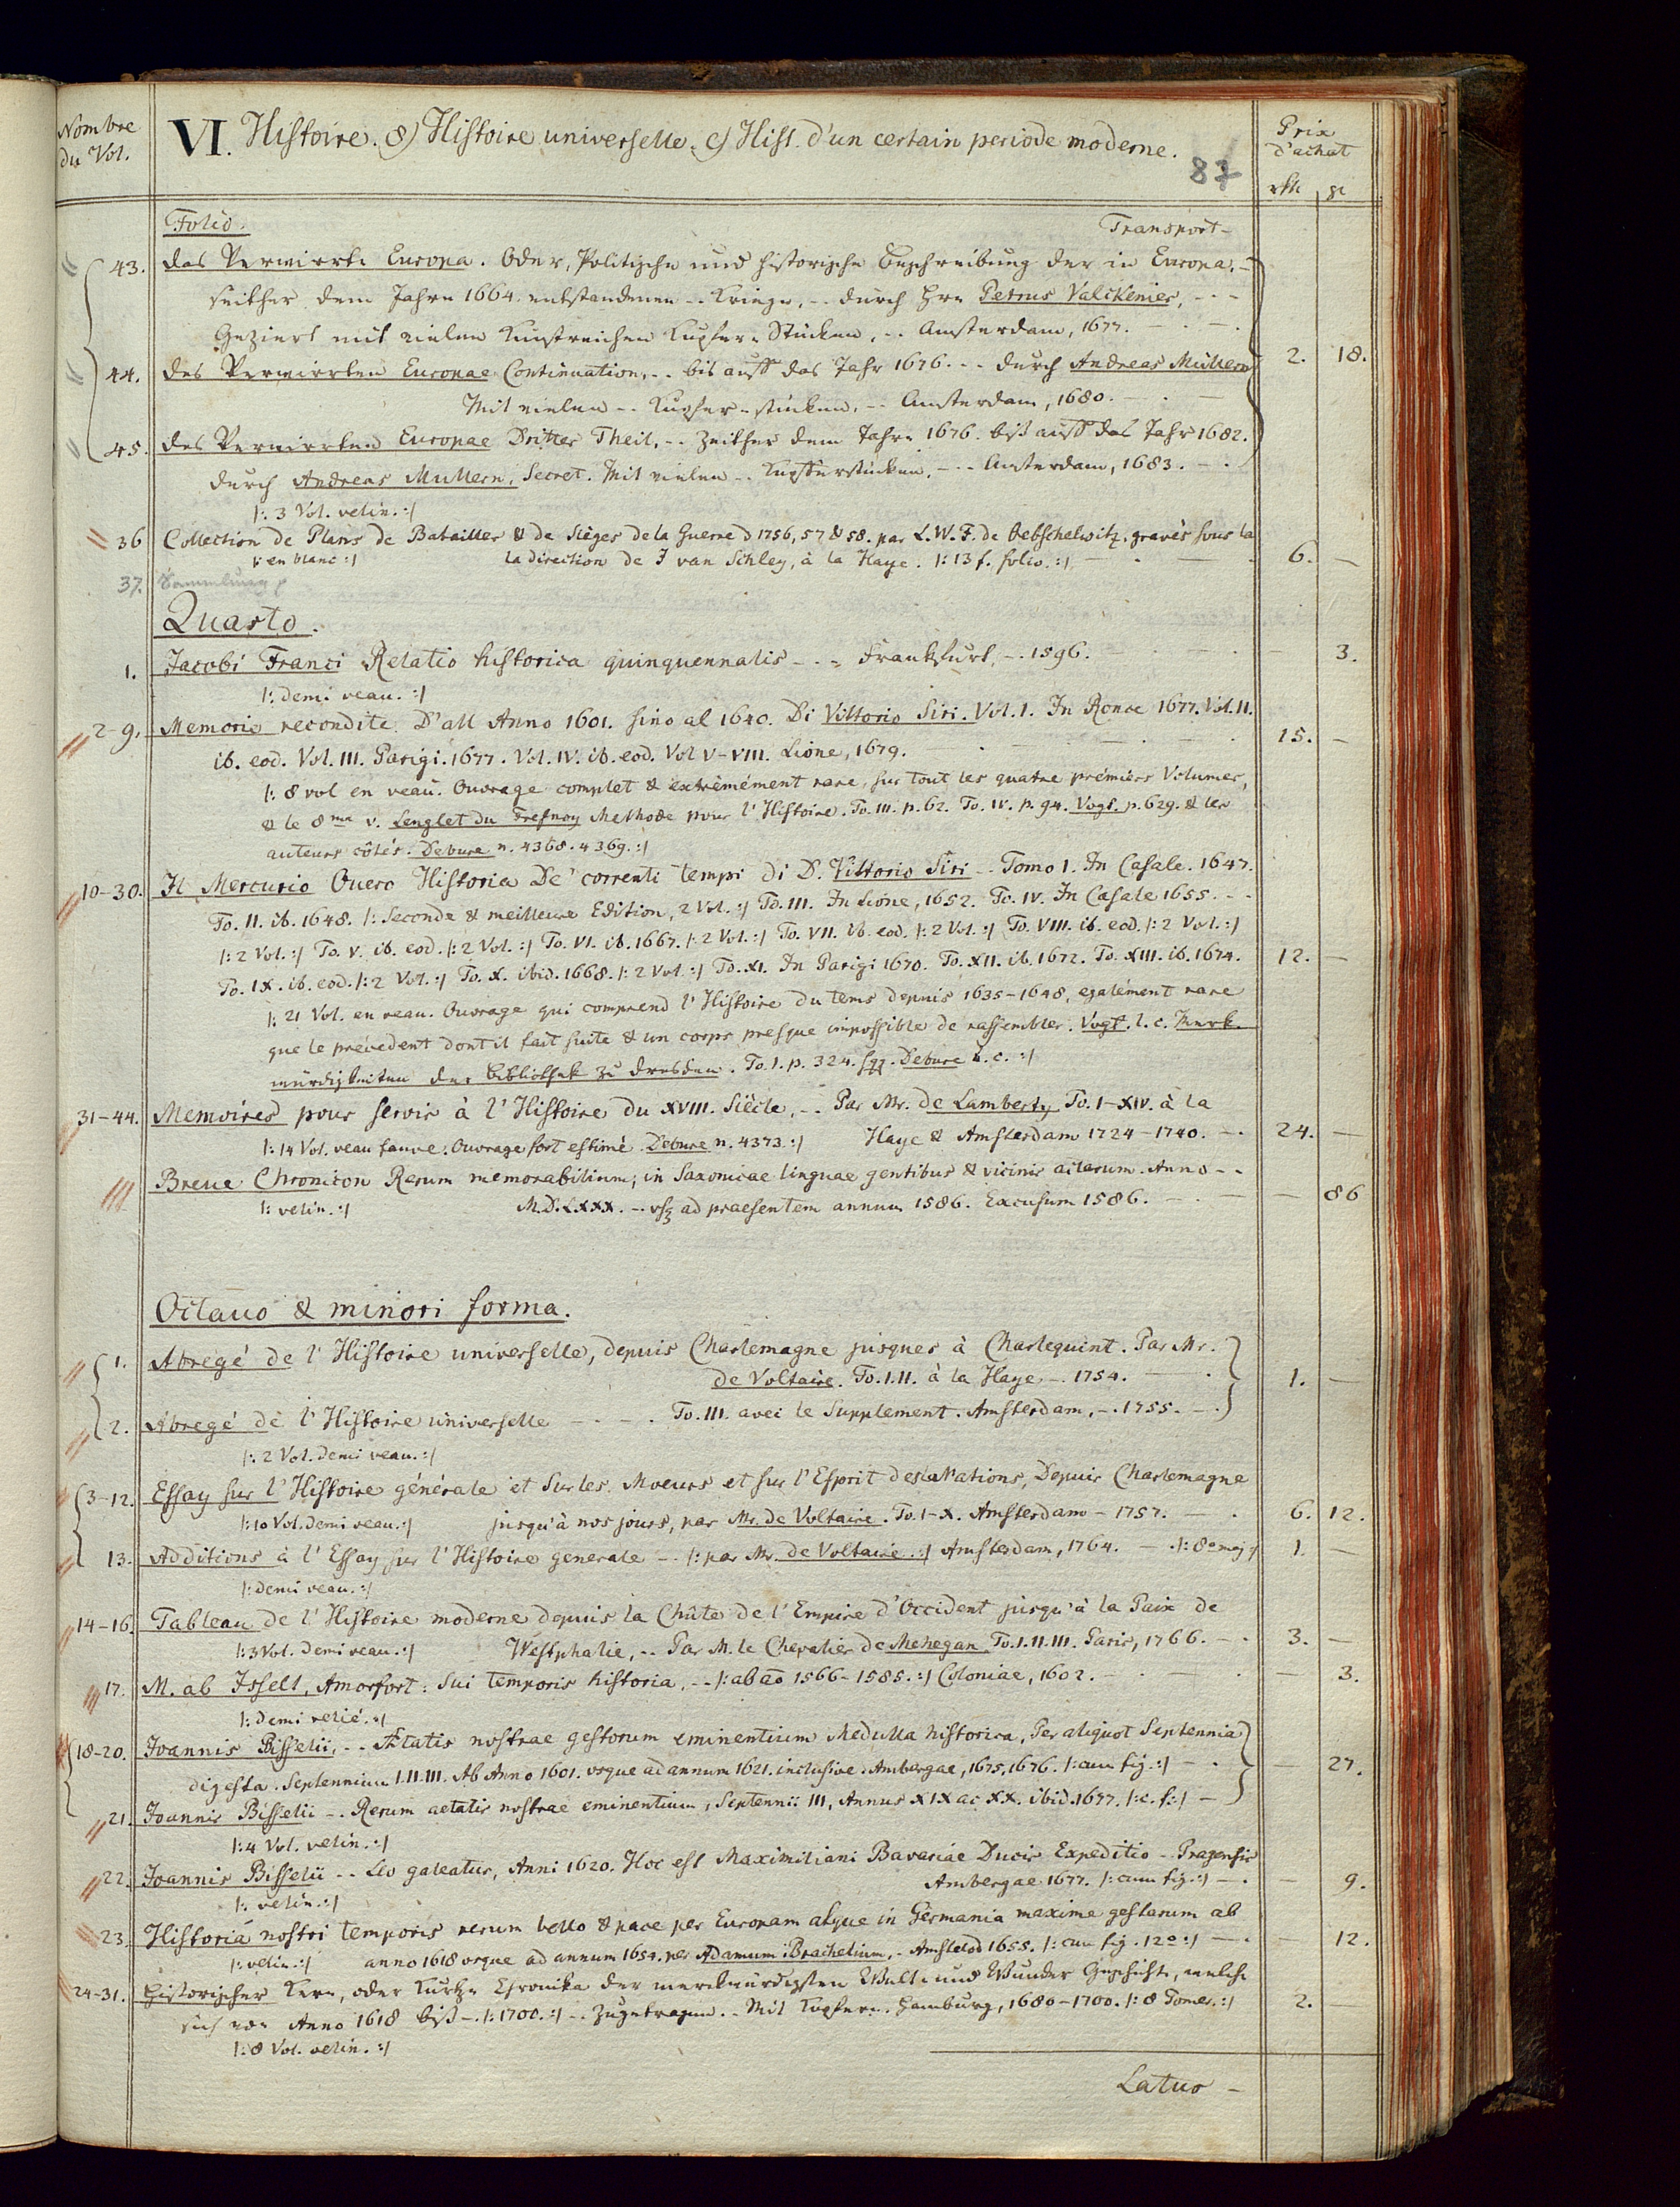 Nombre
du Vol.
VI. Histoire. 8) Histoire universelle. c) Hist. d'un certain periode moderne.
87
Prix
d'achat
rth gr
Folio. Transport -
43. Das Verwirrte Europa. Oder, Politische und Historische Beschreibung der in Europa, -
seither dem Jahre 1664. entstandenen -- Kriege, -- durch Hrn Petrus Valckenier, - - -
Geziert mit vielen Kunstreichen Kupfer-Stücken, -- Amsterdam, 1677. - . - .
2. 18.
44. Des Verwirrten Europae Continuation, -- bis auff das Jahr 1676. -- durch Andreas Müllern
Mit vielen -- Kupfer-stücken, -- Amsterdam, 1680. - . -
45. Des Verwirrten Europae Dritter Theil, -- Zeither dem Jahre 1676. biß auff das Jahr 1682.
durch Andreas Mullern, Secret. Mit vielen -- Kupfferstücken, --- Amsterdam, 1683. - .
|: 3 Vol. velin. :|
36 Collection de Plans de Batailles & de Sièges de la Guerre d 1756, 57 & 58. par L. W. F. de Oebschelwitz. gravés sous la
|: en blanc :| la direction de J van Schley, à la Haye. |: 13 f. folio. :| - . - . 6. -
37. Sammlung
Quarto.
1. Jacobi Franci Relatio historica quinquennalis - - - Frankfurt, -. 1596. - . - . - 3.
|: demi veau. :|
2-9. Memorie recondite D'all Anno 1601. sino al 1640. Di Vittorio Siri. Vol. I. In Ronco 1677. Vol. II.
ib. eod. Vol. III. Parigi. 1677. Vol. IV. ib. eod. Vol V-VIII. Lione, 1679. - . - . - . 15. -
|: 8 vol en veau. Ouvrage complet & extrèmément rare, sur tout les quatre prémiers Volumes,
& le 8me v. Lenglet du Fresnoy Methode pour l'Histoire. To. III. p. 62. To. IV. p. 94. Vogt. p. 629. & les
auteurs côtés. Debure n. 4368. 4369. :|
10-30. Il Mercurio Ouero Historia De' correnti tempi di D. Vittorio Siri -- Tomo I. In Casale. 1647.
To. II. ib. 1648. |: Seconde & meilleure Edition, 2 Vol. :| To. III. In Lione, 1652. To. IV. In Casale 1655. - -
|: 2 Vol. :| To. V. ib. eod. |: 2 Vol. :| To. VI. ib. 1667. |: 2 Vol. :| To. VII. ib. eod. |: 2 Vol. :| To. VIII. ib. eod. |: 2 Vol. :|
To. IX. ib. eod. |: 2 Vol. :| To. X. ibid. 1668. |: 2 Vol. :| To. XI. In Parigi 1670. To. XII. ib. 1672. To. XIII. ib. 1674. 12. -
|: 21 Vol. en veau. Ouvrage qui comprend l'Histoire du tems depuis 1635-1648, egalément rare
que le précedent dont il fait suite & un corps presque impossible de rassembler. Vogt. l. c. Merk-
würdigkeiten der Bibliothek zu Dresden. To. I. p. 324. sqq. Debure l. c. :|
31-44. Memoires pour servir à l'Histoire du XVIII. Siècle, -- Par Mr. de Lamberty To. I-XIV. à la
|: 14 Vol. veau fauve. Ouvrage fort estimé. Debure n. 4373. :| Haye & Amsterdam 1724-1740. - . 24. -
Breue Chronicon Rerum memorabilium, in Saxonicae linguae gentibus & vicinis actarum. Anno - -
|: velin. :| M.D.LXXX. -- usq ad praesentem annum 1586. Excusum 1586. - . - - 86
Octauo & minori forma.
1. Abregé de l'Histoire universelle, depuis Charlemagne jusques à Charlequint. Par Mr.
de Voltaire. To. I. II. à la Haye -. 1754. - . 1. -
2. Abregé de l'Histoire universelle - . - . To. III. avec le Supplement. Amsterdam, -. 1755. - .
|: 2 Vol. demi veau. :|
3-12. Essay sur l'Histoire générale et sur les Moeurs et sur l'Esprit des Nations, Depuis Charlemagne
|: 10 Vol. demi veau. :| jusqu'à nos jours, par Mr. de Voltaire. To. I-X. Amsterdam - 1757. - . 6. 12.
13. Additions à l'Essay sur l'Histoire generale - . |: par Mr. de Voltaire. :| Amsterdam, 1764. - . |: 8o maj :| 1. -
|: demi veau. :|
14-16. Tableau de l'Histoire moderne depuis la Chûte de l'Empire d'Occident jusqu'à la Paix de
|: 3 Vol. demi veau. :| Westphalie, -- Par M. le Chevalier de Mehegan. To. I. II. III. Paris, 1766. - . 3. -
17. M. ab Isselt, Amorfort: Sui temporis historia, -- |: ab ao 1566-1585. :| Coloniae, 1602. - . - . - 3.
|: demi relié. :|
18-20. Joannis Bisselii, -- Ætatis nostrae gestorum eminentium Medulla historica, Per aliquot Septennia
digesta. Septennium I. II. III. Ab Anno 1601. vsque ad annum 1621. inclusive. Ambergae, 1675, 1676. |: cum fig. :| - . - 27.
21. Joannis Bisselii -- Rerum aetatis nostrae eminentium, Septennii III, Annus XIX ac XX. ibid. 1677. |: c. f. :| -
|: 4 Vol. velin. :|
22. Joannis Bisselii -- Leo galeatus, Anni 1620. Hoc est Maximiliani Bavariae Ducis Expeditio -- Pragensis
|: velin. :| Ambergae 1677. |: cum fig. :| - . - 9.
23. Historia nostri temporis rerum bello & pace per Europam atque in Germania maxime gestarum ab
|: velin. :| anno 1618 vsque ad annum 1654. per Adamum Brachelium, - Amstelod 1655. |: cum fig. 12o :| - . - 12.
24-31. Historischer Kern, oder Kurtze Chronika der merckwürdigsten Welt- und Wunder Geschichte, welche
sich von Anno 1618 biß -. |: 1700. :| -- Zugetragen. -- Mit Kupfern. Hamburg, 1680-1700. |: 8 Tomes. :| 2. -
|: 8 Vol. velin. :|
Latus -